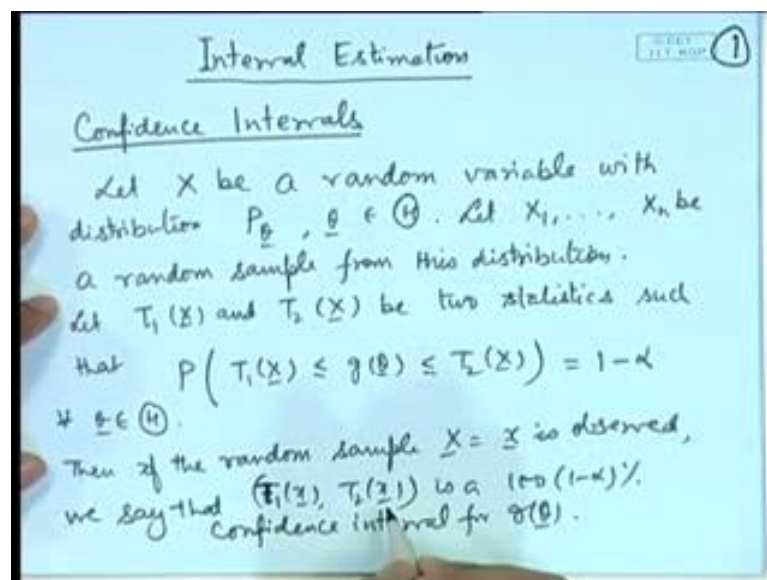 Interval Estimation
1
Confidence Intervals
Let X be a random variable with
distribution P_θ , θ ∈ Ⓗ. Let X₁, ...., Xₙ be
a random sample from this distribution.
Let T₁(X) and T₂(X) be two statistics such
that P( T₁(X) ≤ g(θ) ≤ T₂(X)) = 1-α
∀ θ ∈ Ⓗ.
Then if the random sample X = x is observed,
we say that (T₁(x), T₂(x)) is a 100(1-α)%
confidence interval for g(θ).